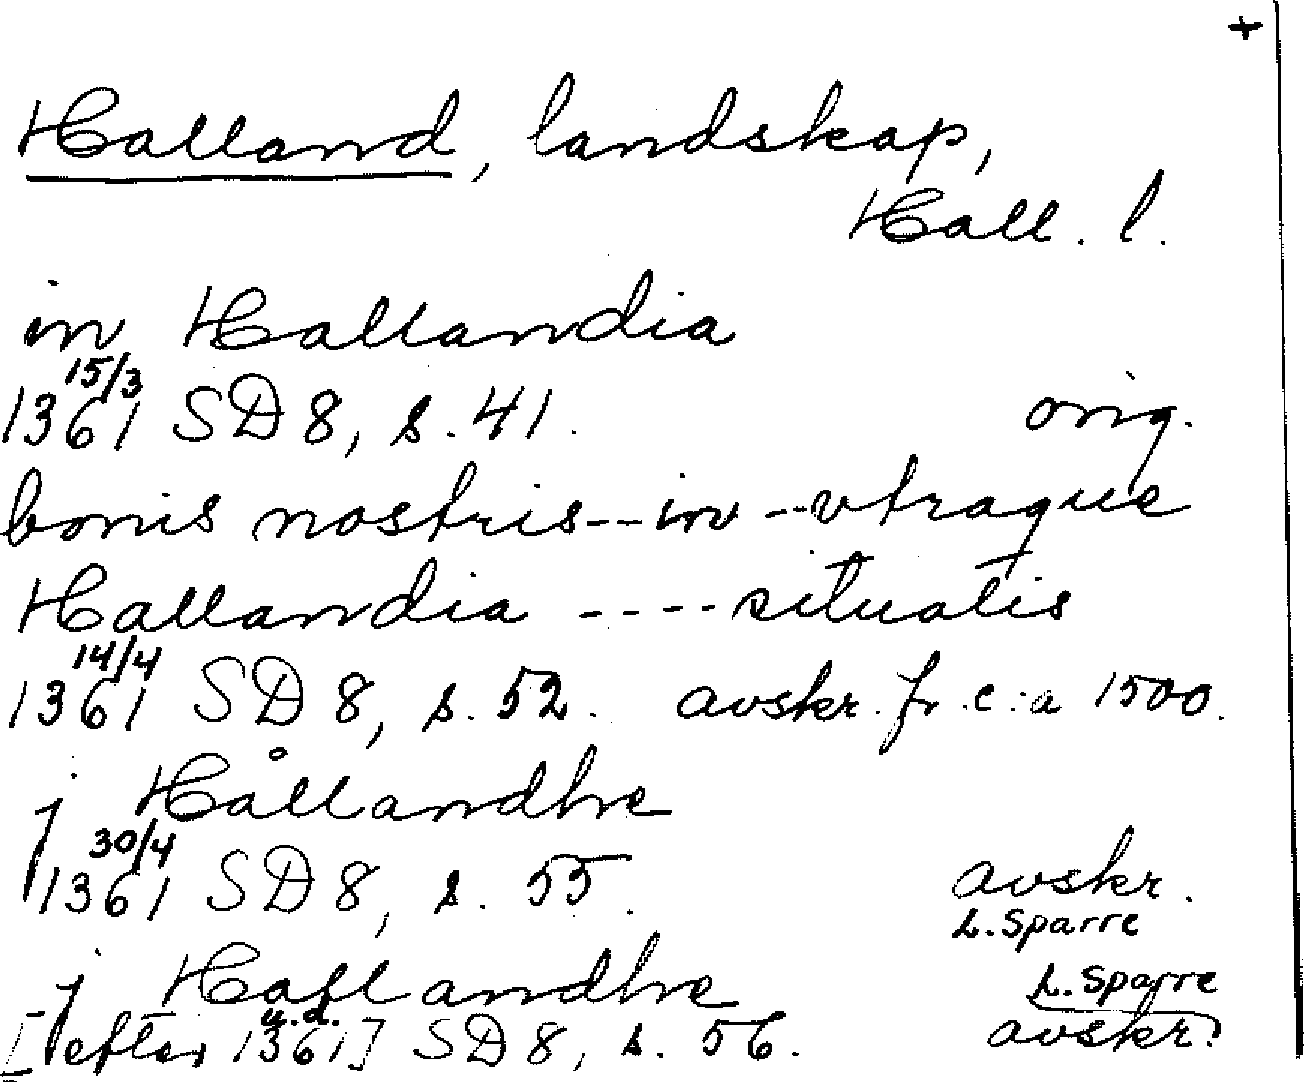 +
Halland, landskap,
Hall. l.
in Hallandia
15/3
1361 SD 8, s. 41. orig.
bonis nostris -- in -- vtraque
Hallandia ---- situatis
14/4
1361 SD 8, s. 52. avskr. fr. c:a 1500.
j Hållandhe
30/4
1361 SD 8, s. 55. avskr.
L. Sparre
j Hallandhe L. Sparre
u.d.
[efter 1361] SD 8, s. 56. avskr.